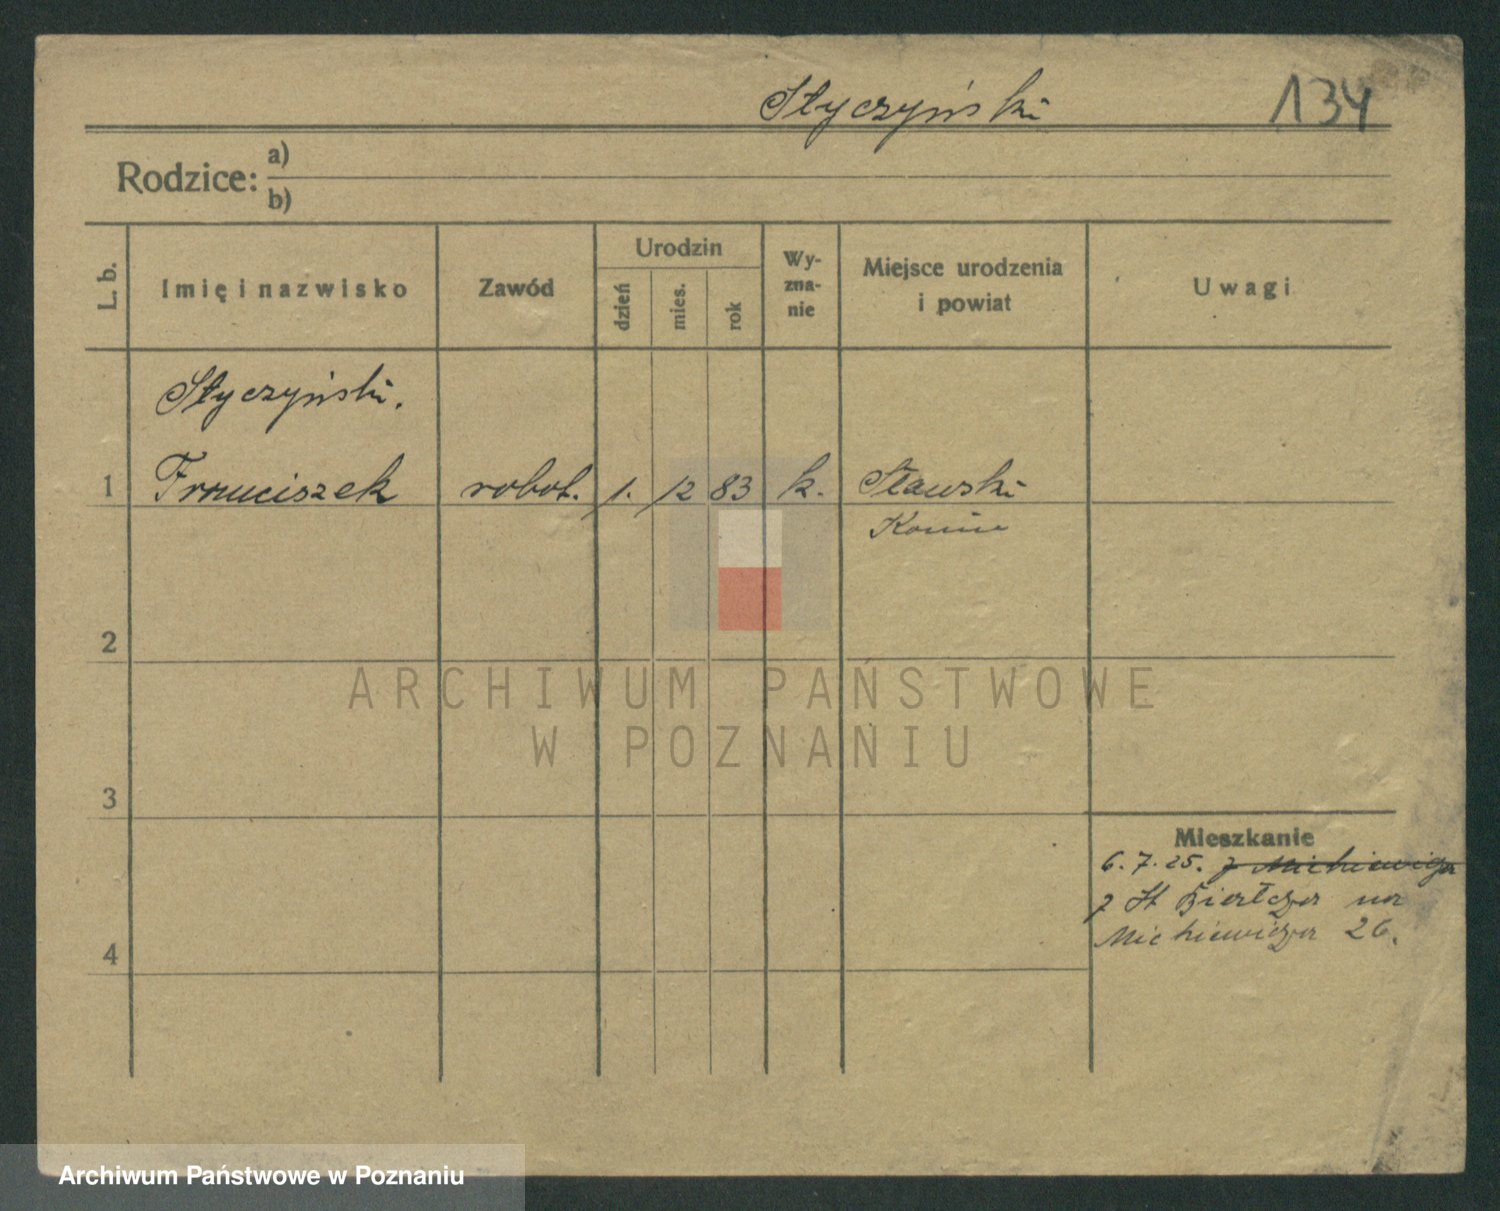 Styczyński 134
Rodzice: a)
b)
L. b. Imię i nazwisko Zawód Urodzin dzień mies. rok Wy-zna-nie Miejsce urodzenia i powiat Uwagi
Styczyński.
1 Franciszek robot. 1. 12 83 k. Stawski
Konin
2
ARCHIWUM PAŃSTWOWE
W POZNANIU
3
Mieszkanie
6. 7. 25. z Mickiewicza
z St. na
4 Mickiewicza 26.
Archiwum Państwowe w Poznaniu